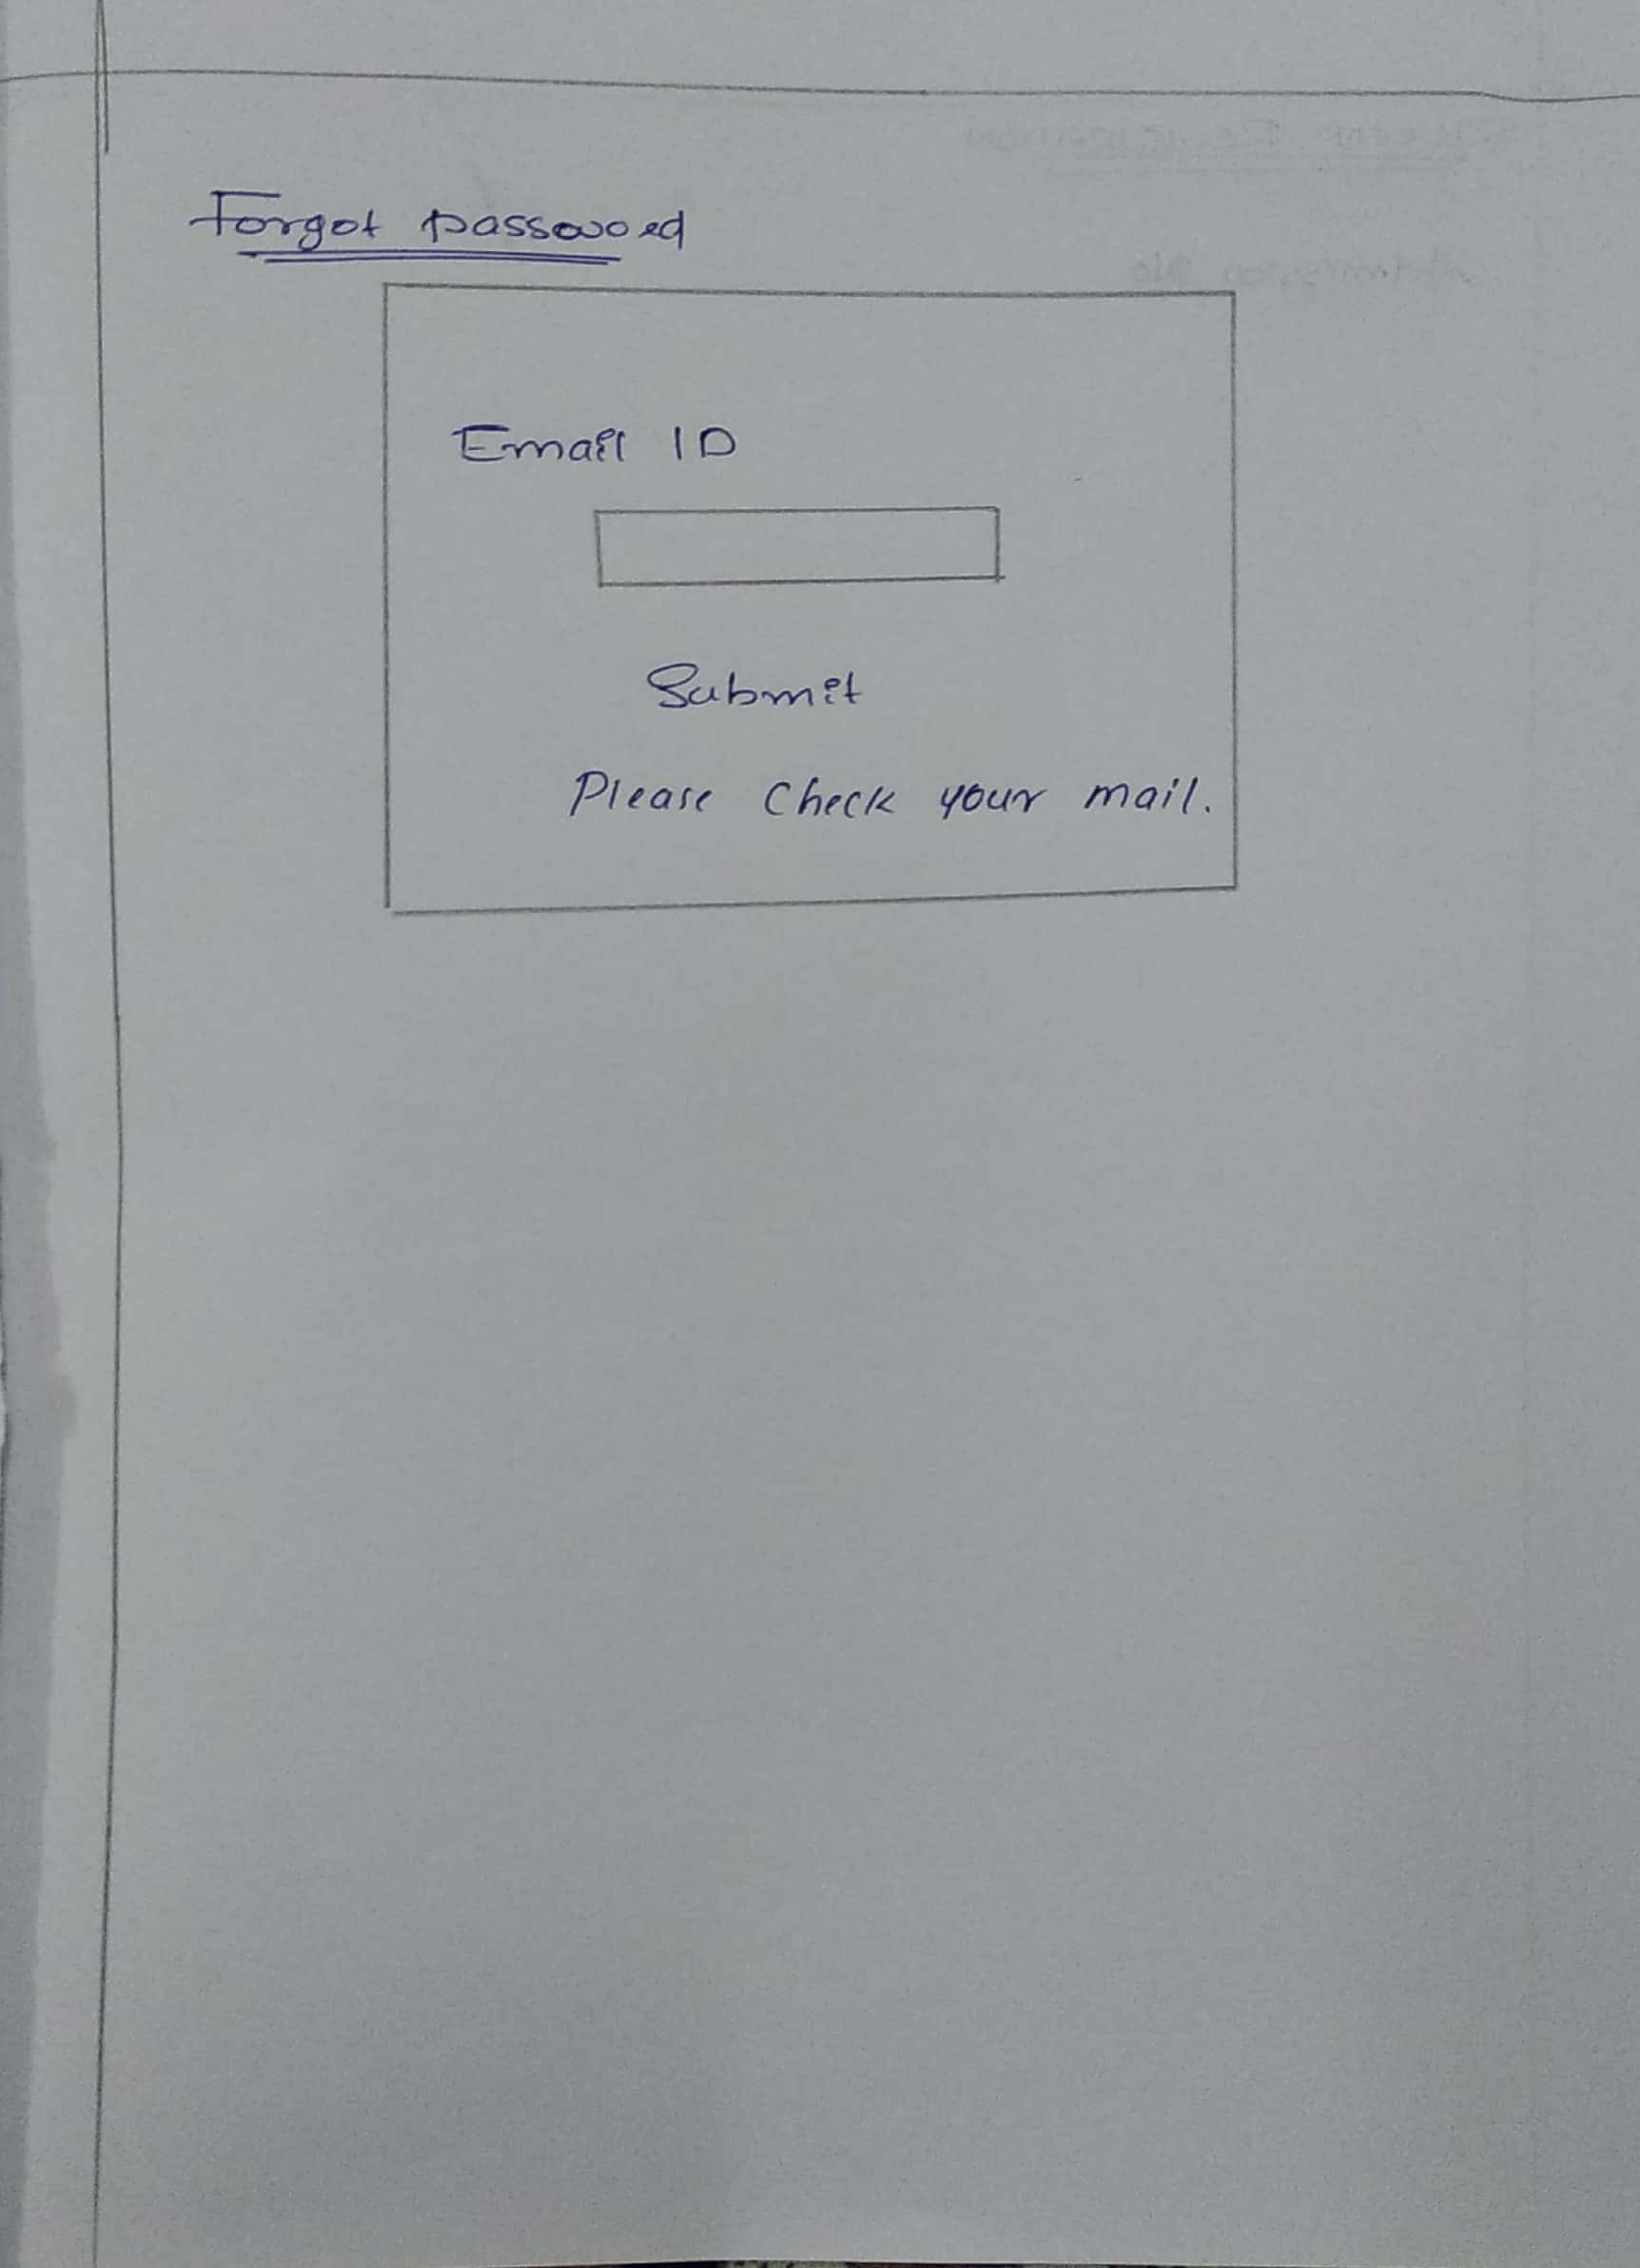 Forgot password
Email ID
Submit
Please Check your mail.